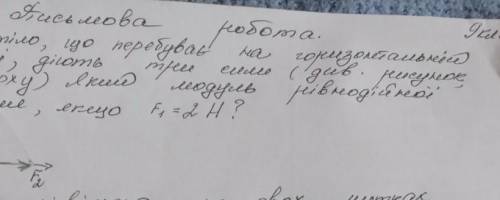 Письмова робота.
тіло, що перебуває на горизонтальній
і, діють три сили (див. рисунок,
Який модуль рівнодійної
якщо F₁ = 2 Н?
F₂